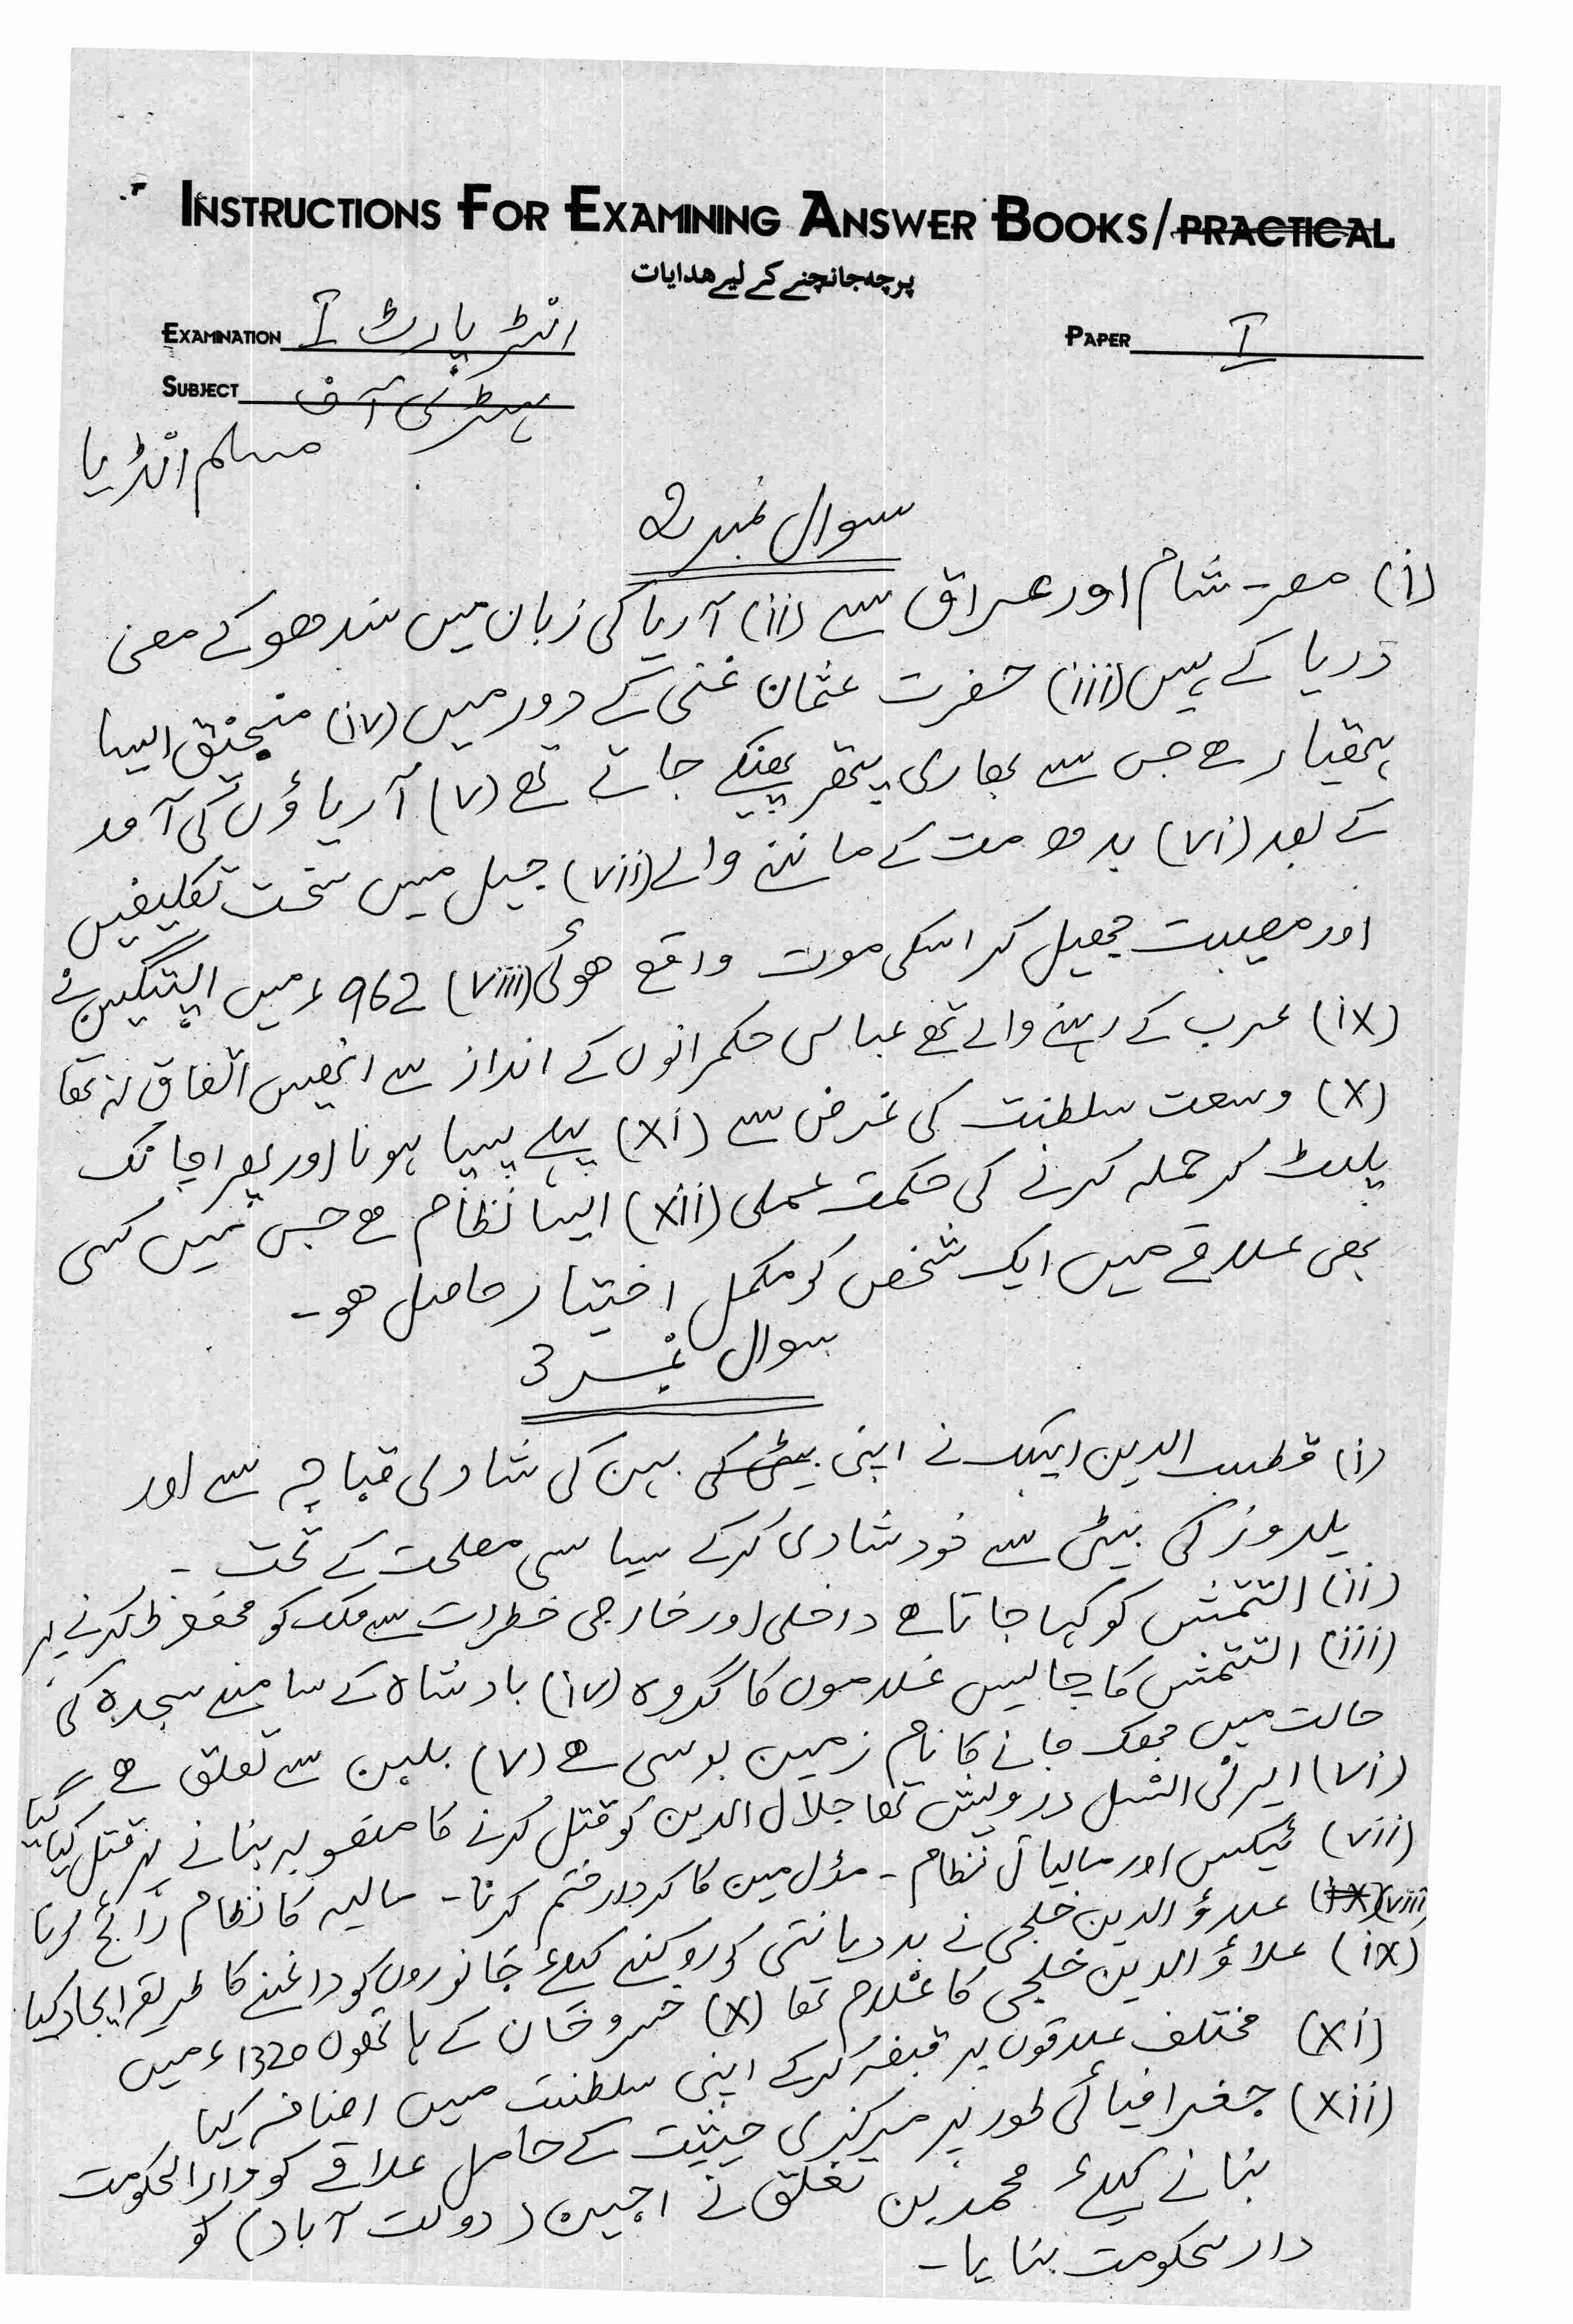 INSTRUCTIONS FOR EXAMINING ANSWER BOOKS/PRACTICAL
پرچہ جانچنے کے لیے ھدایات
EXAMINATION انٹر پارٹ I
PAPER I
SUBJECT ہسٹری آف
مسلم انڈیا
سوال نمبر 2
(i) مصر۔ شام اور عراق سے (ii) آریا کی زبان میں سندھو کے معنی
دریا کے ہیں (iii) حضرت عثمان غنی کے دور میں (iv) منجنق ایسا
ہتھیار ہے جس سے بھاری پتھر پھینکے جاتے تھے (v) آریاؤں کی آمد
کے بعد (vi) بدھ مت کے ماننے والے (vii) جیل میں سخت تکلیفیں
اور مصیبت جھیل کر اسکی موت واقع ھوئی (viii) 962ء میں الپتگین نے
(ix) عرب کے رہنے والے تھے عباسی حکمرانوں کے انداز سے انھیں اتفاق نہ تھا
(x) وسعت سلطنت کی غرض سے (xi) پہلے پسپا ہونا اور پھر اچانک
پلٹ کر حملہ کرنے کی حکمت عملی (xii) ایسا نظام ہے جس میں کسی
بھی علاقے میں ایک شخص کو مکمل اختیار حاصل ھو۔
سوال نمبر 3
(i) قطب الدین ایبک نے اپنی بیٹی کی بہن کی شادی قباچہ سے اور
یلدوز کی بیٹی سے خود شادی کرکے سیاسی مصلحت کے تحت۔
(ii) التتمش کو کہا جاتا ہے داخلی اور خارجی خطرات سے ملک کو محفوظ کرنے پر
(iii) التتمش کا چالیس غلاموں کا گروہ (iv) بادشاہ کے سامنے سجدہ کی
حالت میں جھک جانے کا نام زمین بوسی ہے (v) بلبن سے تعلق ہے
(vi) ایرانی النسل درویش تھا جلال الدین کو قتل کرنے کا منصوبہ بنانے پر قتل کیا گیا
(vii) ٹیکس اور مالیاتی نظام۔ مڈل مین کا کردار ختم کرنا۔ مالیہ کا نظام رائج کرنا
(ix) (viii) علاؤ الدین خلجی نے بددیانتی کو روکنے کیلئے جانوروں کو داغنے کا طریقہ ایجاد کیا
(ix) علاؤ الدین خلجی کا غلام تھا (x) خسرو خان کے ہاتھوں 1320ء میں
(xi) مختلف علاقوں پر قبضہ کرکے اپنی سلطنت میں اضافہ کیا
(xii) جغرافیائی طور پر مرکزی حیثیت کے حامل علاقے کو دارالحکومت
بنانے کیلئے محمد بن تغلق نے اجین (دولت آباد) کو
دار حکومت بنایا۔